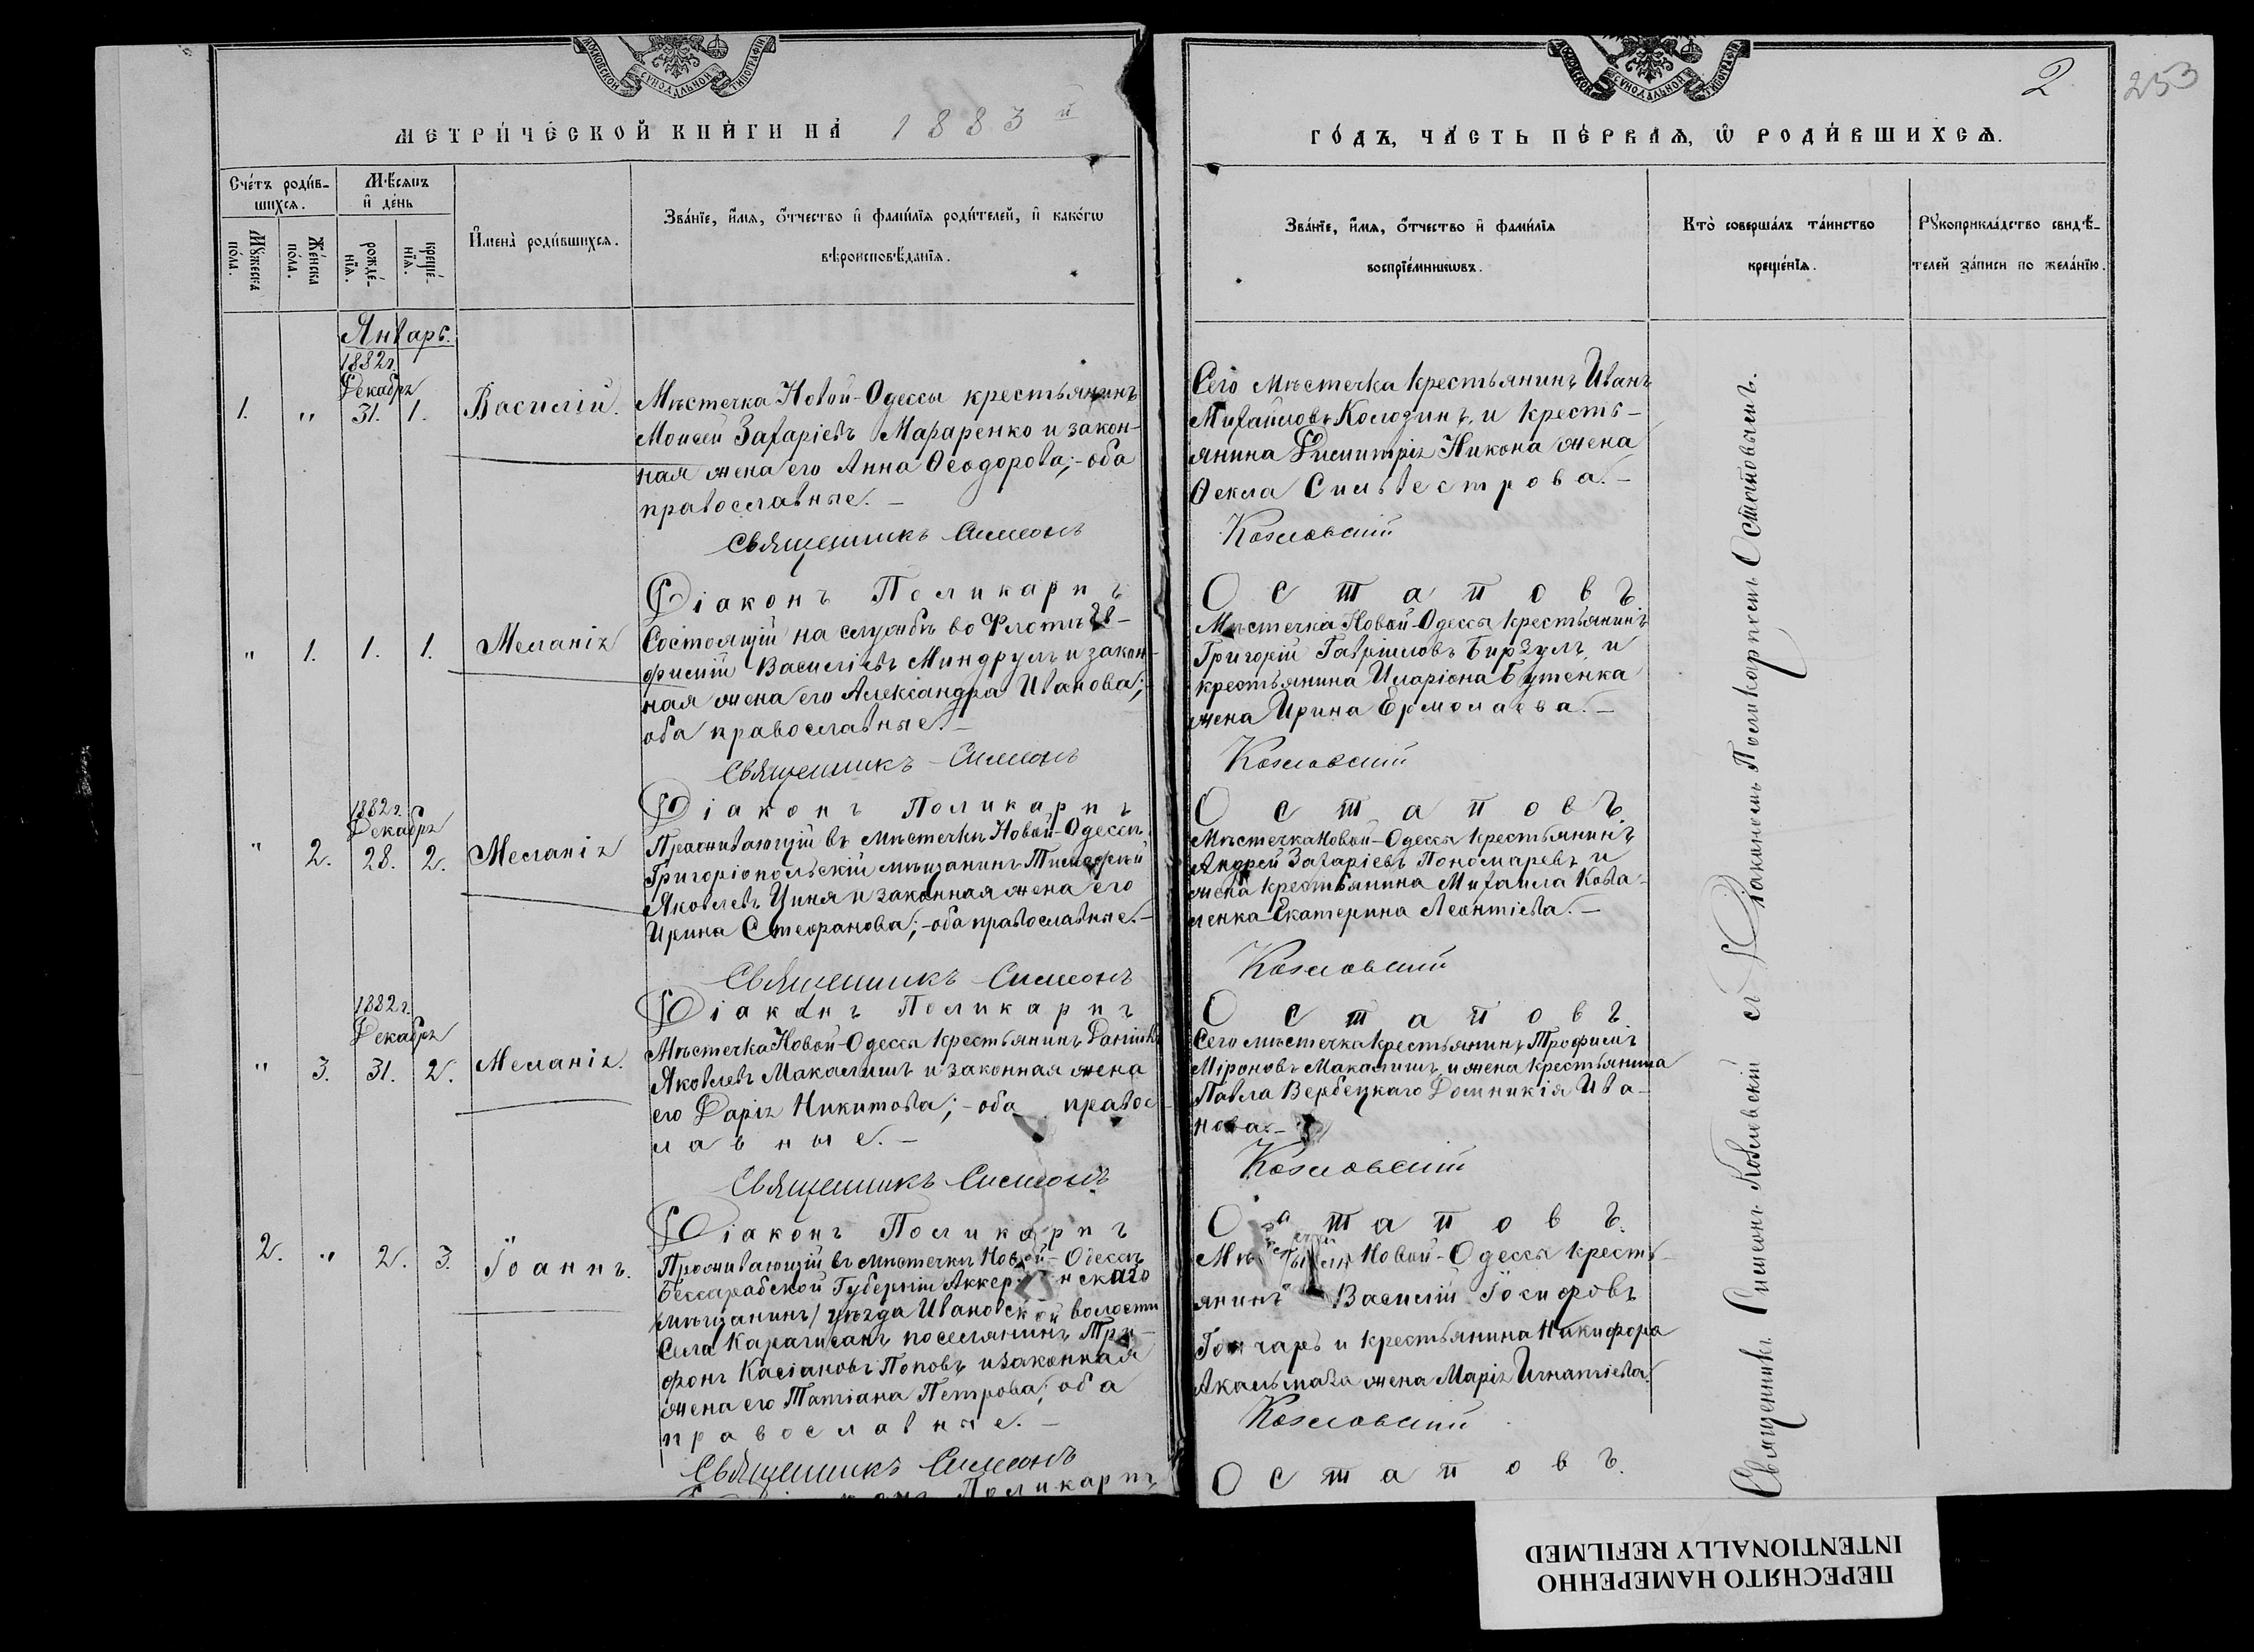 МОСКОВСКОЙ СУНОДАЛЬНОЙ ТИПОГРАФІИ
МЕТРИ́ЧЕСКОЙ КНИ́ГИ НА̀ 1883 й
Сче́тъ роди́в-
шихсѧ.
М̾ѣсѧцъ
и҆ де́нь
Мꙋ́жеска
по́ла.
Же́нска
по́ла.
рожде́-
нїѧ.
креще́-
нїѧ.
И҆мена̀ роди́вшихсѧ.
Зва́нїе, и҆́мѧ, ѻ҆́тчество и҆ фами́лїѧ роди́телей, и҆ како́гѡ
вѣроисповѣ́данїѧ.
Январь.
1882 г.
Декабря
1. " 31. 1. Василій.
Мѣстечка Новой-Одессы крестьянинъ
Моисей Захаріевъ Мараренко и закон-
ная жена его Анна Ѳеодорова; - оба
православные. -
Священникъ Симеонъ
Діаконъ Поликарпъ
" 1. 1. 1. Меланія
Состоящій на службѣ во Флотѣ
филій Василіевъ Миндрулъ и закон-
ная жена его Александра Иванова;
оба православные. -
Священникъ Симеонъ
Діаконъ Поликарпъ
1882 г.
Декабря
" 2. 28. 2. Меланія
Проживающій въ мѣстечкѣ Новой-Одессѣ
Григоріопольскій мѣщанинъ Тимофей
Яковлевъ Циня и законная жена его
Ирина Стефанова; - оба православные. -
Священникъ Симеонъ
Діаконъ Поликарпъ
1882 г.
Декабря
" 3. 31. 2. Меланія.
Мѣстечка Новой-Одессы крестьянинъ Даніилъ
Яковлевъ Макалишъ и законная жена
его Дарія Никитова; - оба правос-
лавные. -
Священникъ Симеонъ
Діаконъ Поликарпъ
2. " 2. 3. Іоаннъ.
Проживающій въ мѣстечкѣ Новой-Одессѣ
Бессарабской Губерніи Аккер нскаго
мѣщанинъ/ уѣзда Ивановской волости
села Карагисанъ поселянинъ Три-
фонъ Касіановъ Поповъ и законная
жена его Татіана Петрова; оба
православные. -
Священникъ Симеонъ
Поликарпъ
МОСКОВСКОЙ СУНОДАЛЬНОЙ ТИПОГРАФІИ
2 253
ГО́ДЪ, ЧА́СТЬ ПЕ́РВАѦ, Ѡ҆ РОДИ́ВШИХСѦ.
Зва́нїе, и҆́мѧ, ѻ҆́тчество и҆ фами́лїѧ
воспрїе́мникѡвъ.
Кто̀ соверша́лъ та́инство
креще́нїѧ.
Рꙋкоприкла́дство свидѣ́-
телей за́писи по жела́нїю.
Сего мѣстечка крестьянинъ Иванъ
Михайловъ Колодинъ, и кресть-
янина Димитрія Никона жена
Ѳекла Сильвестрова. -
Козловскій
Остаповъ
Мѣстечка Новой-Одессы крестьянинъ
Григорій Гавріиловъ Бирзулъ, и
крестьянина Иларіона Бутенка
жена Ирина Ермолаева. -
Козловскій
Остаповъ
Мѣстечка Новой-Одессы крестьянинъ
Андрей Захаріевъ Пономаревъ и
жена крестьянина Михаила Кова-
ленка Екатерина Леонтіева. -
Козловскій
Остаповъ.
Сего мѣстечка крестьянинъ Трофимъ
Міроновъ Макалишъ, и жена крестьянина
Павла Вербецкаго Домникія Ива-
нова. -
Козловскій
Остаповъ.
Новой-Одессы кресть-
янинъ Василій Іосифовъ
Гончаръ и крестьянина Никифора
жена Марія Игнатіева.
Козловскій
Остаповъ.
Священникъ Симеонъ Козловскій съ Діакономъ Поликарпомъ Остаповымъ.
ПЕРЕСНЯТО НАМЕРЕННО
INTENTIONALLY REFILMED